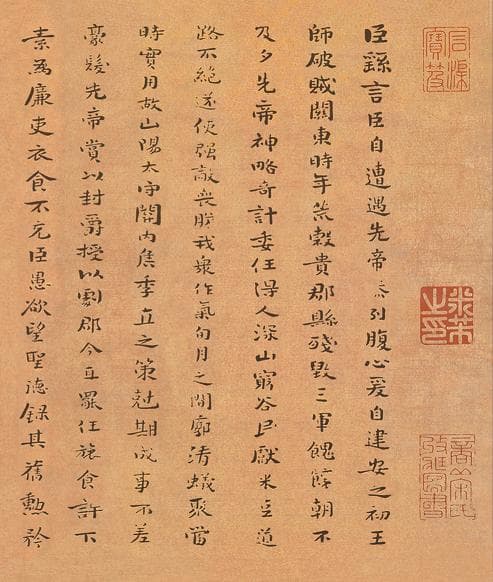 臣繇言臣自遭遇先帝忝列腹心爰自建安之初王
師破賊關東時年荒穀貴郡縣殘毀三軍餽饟朝不
及夕先帝神略奇計委任得人深山窮谷民獻米豆道
路不絕遂使强敵喪膽我衆作氣旬月之間廓清蟻聚當
時實用故山陽太守關內侯季直之策尅期成事不差
豪髮先帝賞以封爵授以劇郡今直罷任旅食許下
素爲廉吏衣食不充臣愚欲望聖德錄其舊勳矜
石渠寶笈
米芾之印